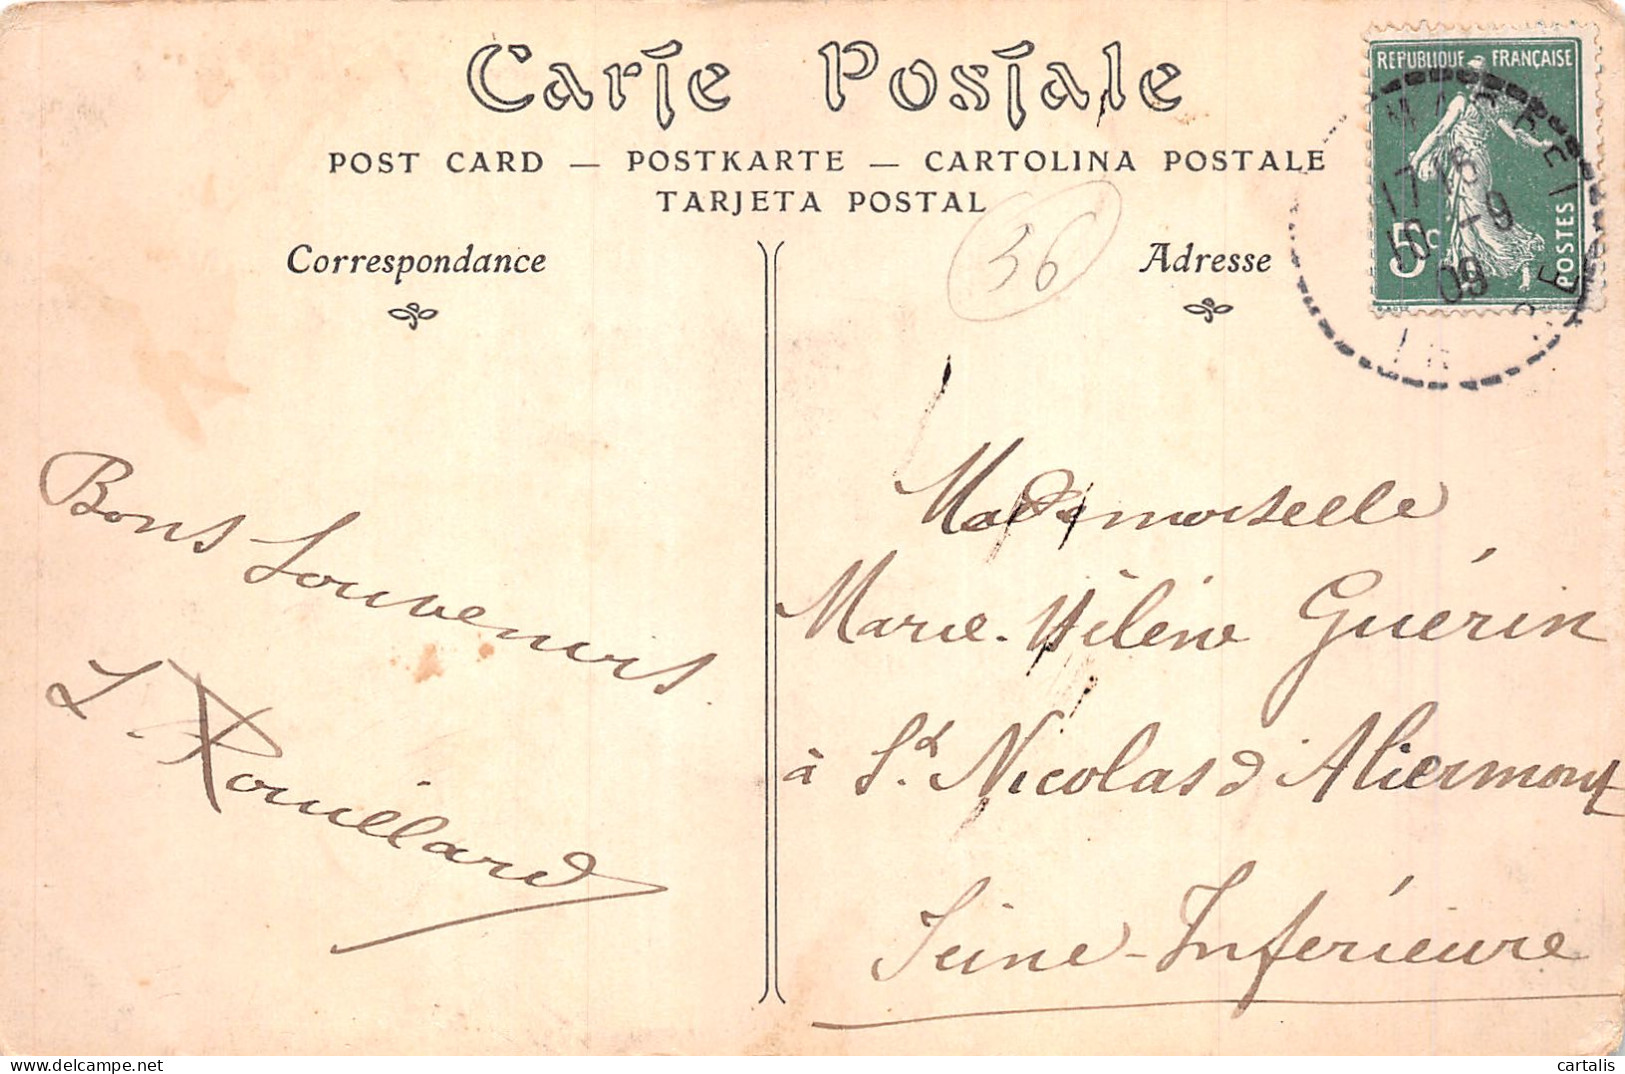 Carte Postale
POST CARD — POSTKARTE — CARTOLINA POSTALE
TARJETA POSTAL
Correspondance
Adresse
36
REPUBLIQUE FRANÇAISE
POSTES
5c
10 -9
09
Bons Souvenirs
L. Rouillard
Mademoiselle
Marie-Hélène Guérin
à St. Nicolas d'Aliermont
Seine-Inférieure
delcampe.net
cartalis